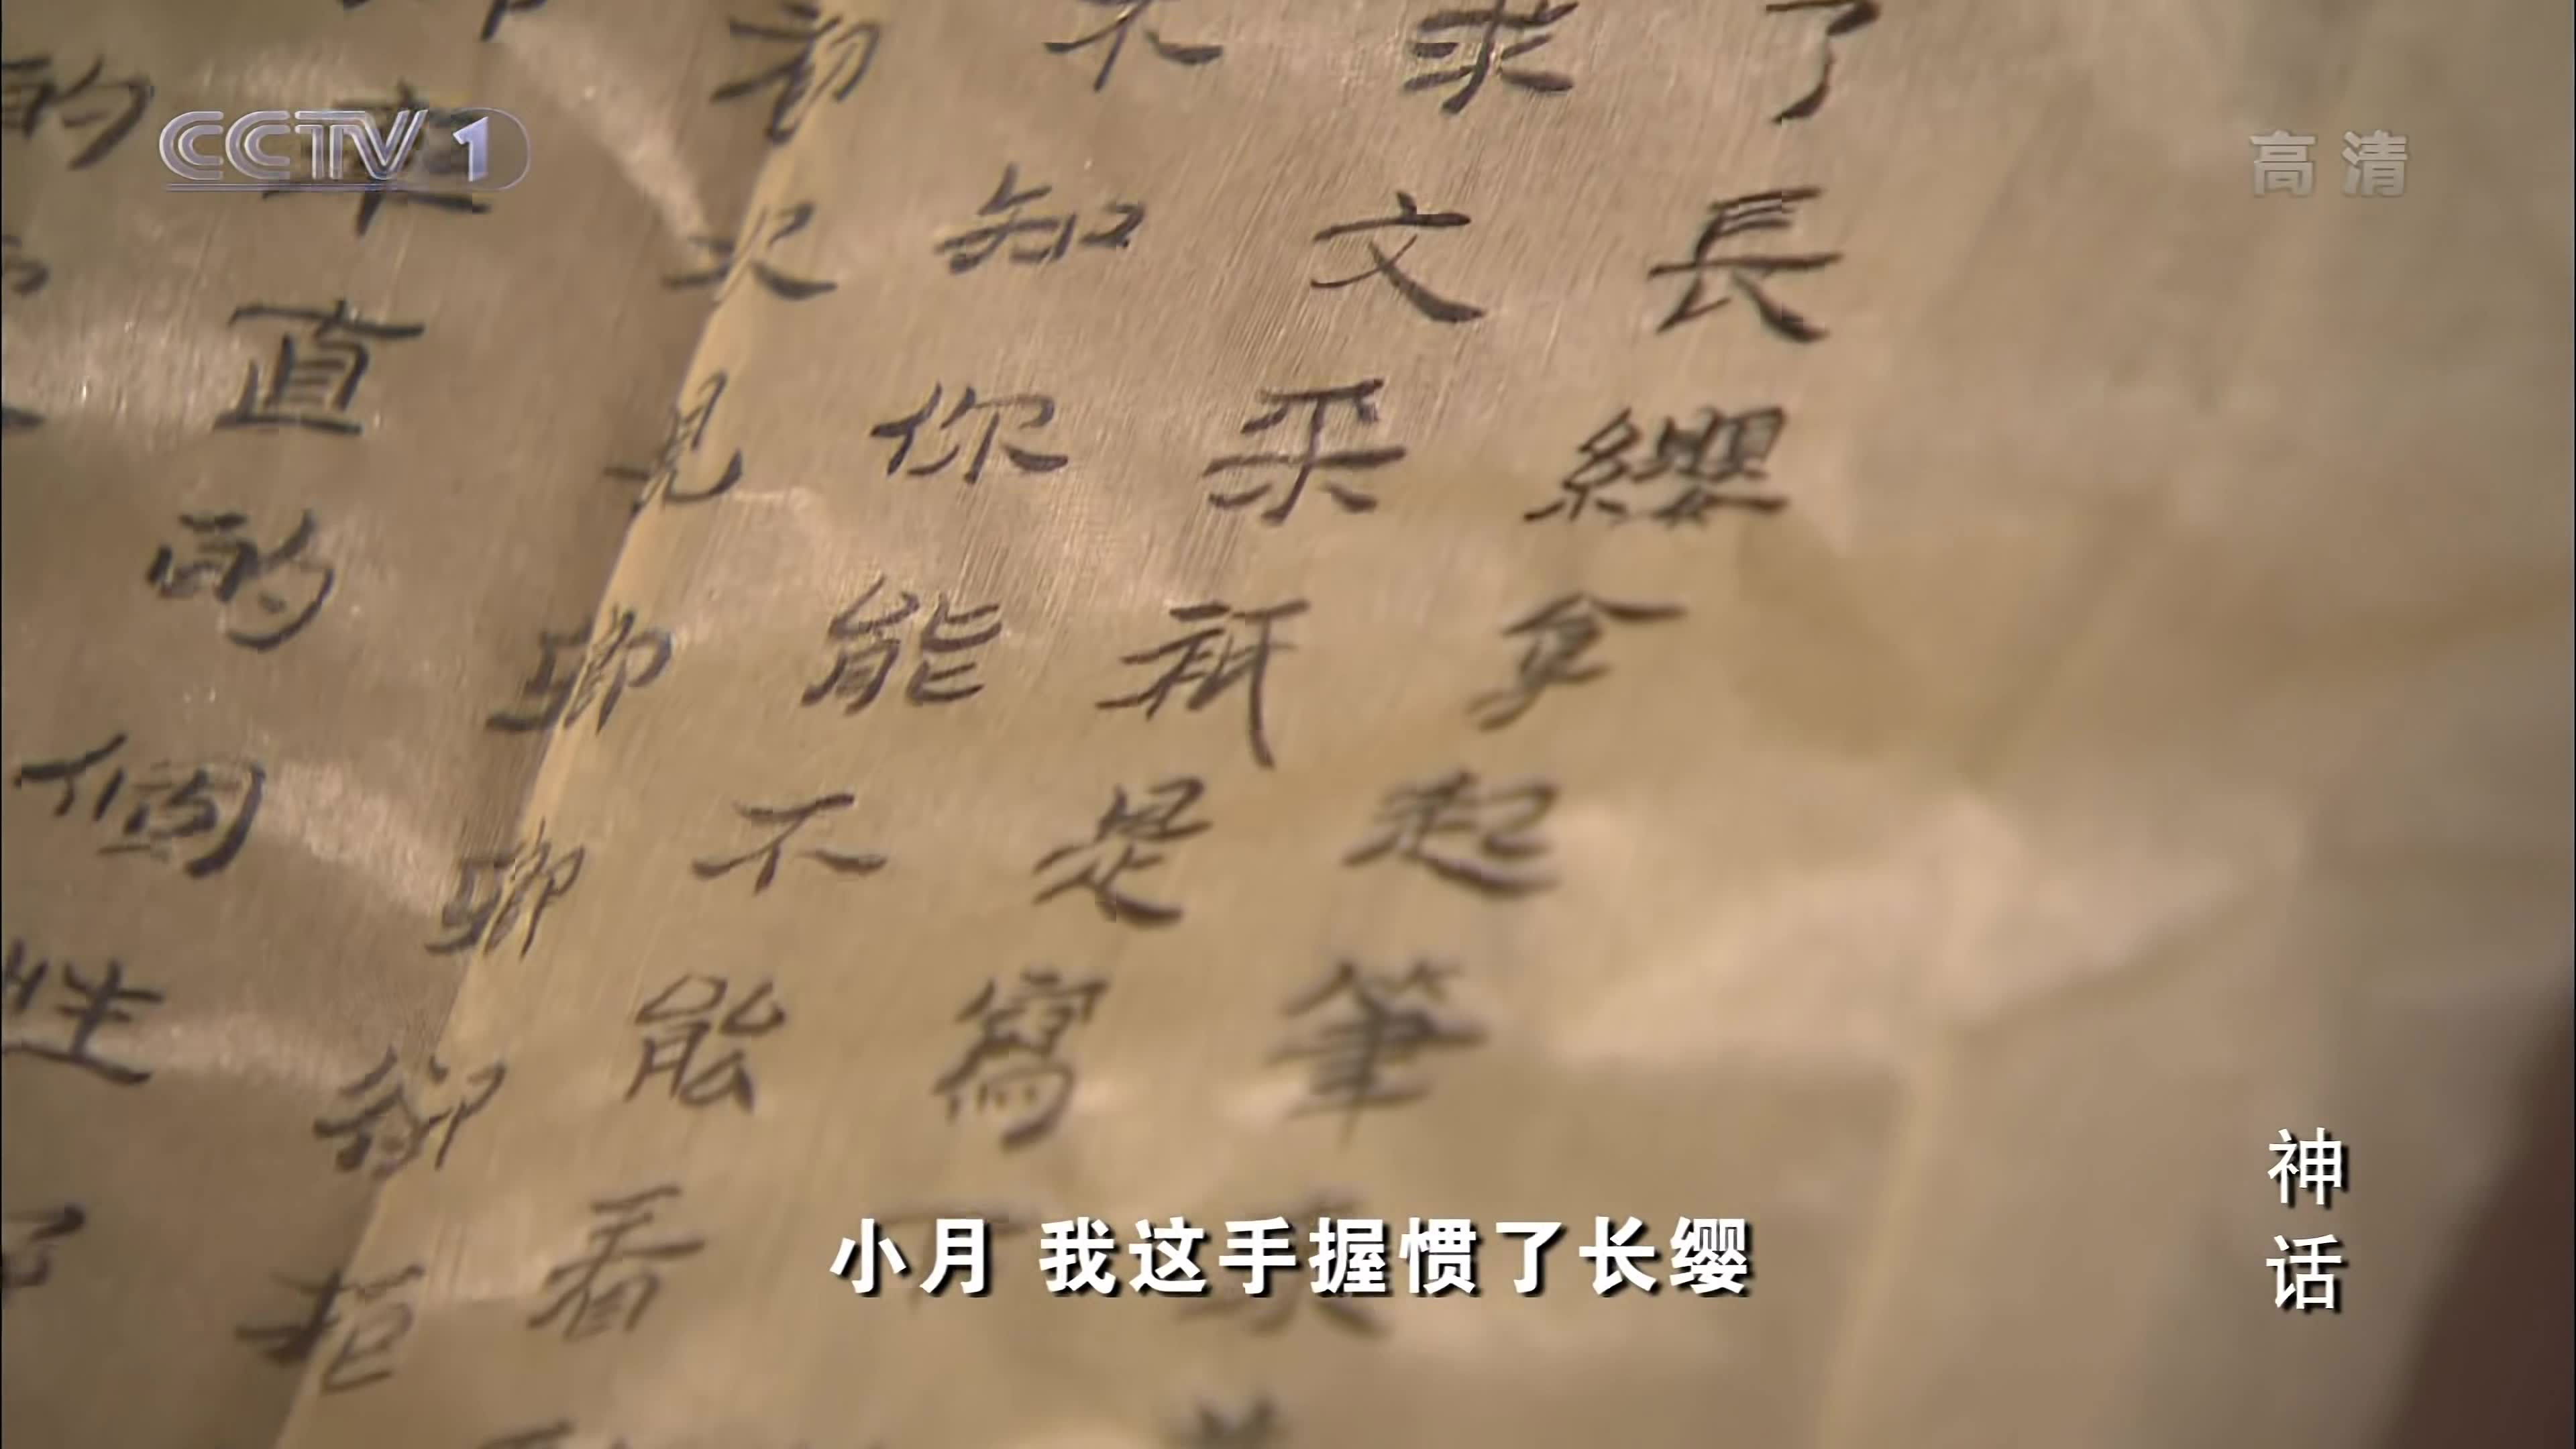 CCTV 1
高清
了長纓拿起筆來
求文采祇是寫
不知你能不能看
初次見卿卿卻拒
率直的個性
的
小月 我这手握惯了长缨
神话